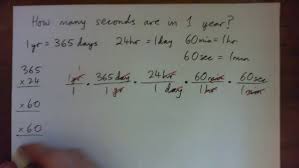 How many seconds are in 1 year?
1yr = 365 days 24hr = 1day 60min = 1hr
60sec = 1min
365
x 24
x 60
x 60
1yr/1 · 365 day/1 yr · 24 hr/1 day · 60 min/1 hr · 60 sec/1 min